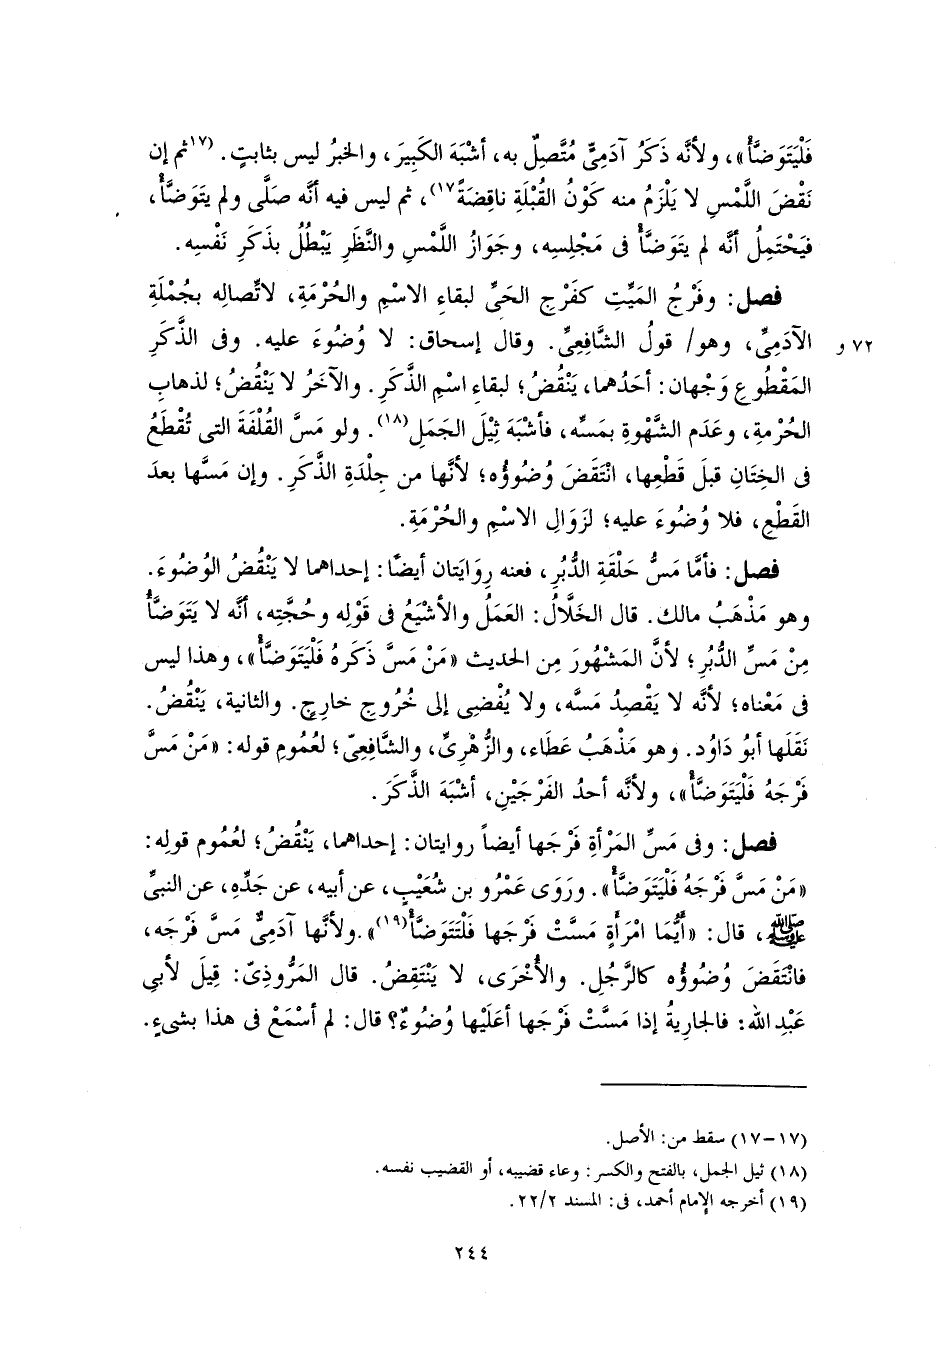 فَلْيَتَوَضَّأْ»، ولأنَّه ذَكَرُ آدَمِىٍّ مُتَّصِلٌ به، أشْبَهَ الكَبِيرَ، والخبرُ ليس بثابتٍ. (١٧ثم إن
نَقْضَ اللَّمْسِ لا يَلْزَمُ منه كَوْنُ القُبْلَةِ ناقِضَةً١٧)، ثم ليس فيه أنَّه صَلَّى ولم يتَوَضَّأْ،
فيَحْتَمِلُ أنَّه لم يتَوَضَّأْ فى مَجْلِسِه، وجَوَازُ اللَّمْسِ والنَّظَرِ يبْطُلُ بذَكَرِ نَفْسِه.
فصل: وفَرْجُ المَيِّتِ كفَرْجِ الحَىِّ لبقاءِ الاسْمِ والحُرْمَةِ، لاتِّصالِه بجُمْلَةِ
٧٢ و الآدَمِىِّ، وهو/ قولُ الشَّافِعِىِّ. وقال إسحاق: لا وُضُوءَ عليه. وفى الذَّكَرِ
المَقْطُوعِ وَجْهان: أحَدُهما، يَنْقُضُ؛ لبقاءِ اسْمِ الذَّكَرِ. والآخَرُ لا يَنْقُضُ؛ لذهابِ
الحُرْمةِ، وعَدَمِ الشَّهْوةِ بمَسِّه، فأشْبَهَ ثِيْلَ الجَمَلِ(١٨). ولو مَسَّ القُلْفَةَ التى تُقْطَعُ
فى الخِتَانِ قبلَ قَطْعِها، انْتَقَضَ وُضُوؤُه؛ لأنَّها من جِلْدَةِ الذَّكَرِ. وإن مَسَّها بعدَ
القَطْعِ، فلا وُضُوءَ عليه؛ لزَوَالِ الاسْمِ والحُرْمَةِ.
فصل: فأمَّا مَسُّ حَلْقَةِ الدُّبُرِ، فعنه رِوَايَتان أيضًا: إحداهما لا يَنْقُضُ الوُضُوءَ.
وهو مَذْهَبُ مالك. قال الخَلَّالُ: العَمَلُ والأشْيَعُ فى قَوْلِه وحُجَّتِه، أنَّه لا يَتَوَضَّأُ
مِنْ مَسِّ الدُّبُرِ؛ لأنَّ المَشْهُورَ مِن الحديث «مَنْ مَسَّ ذَكَرَهُ فَلْيَتَوَضَّأْ»، وهذا ليس
فى مَعْناه؛ لأنَّه لا يَقْصِدُ مَسَّه، ولا يُفْضِى إلى خُرُوجِ خارِجٍ. والثانية، يَنْقُضُ.
نَقَلَها أبُو دَاوُد. وهو مَذْهَبُ عَطَاء، والزُّهْرِىِّ، والشَّافِعِىّ؛ لعُمُومِ قوله: «مَنْ مَسَّ
فَرْجَهُ فَلْيَتَوَضَّأْ»، ولأنَّه أحدُ الفَرْجَيْنِ، أشْبَهَ الذَّكَرَ.
فصل: وفى مَسِّ المَرْأةِ فَرْجَها أيضاً روايتان: إحداهما، يَنْقُضُ؛ لعُمُوم قولِه:
«مَنْ مَسَّ فَرْجَهُ فَلْيَتَوَضَّأْ». ورَوَى عَمْرُو بن شُعَيْبٍ، عن أبيه، عن جَدِّهِ، عن النبىِّ
ﷺ، قال: «أيُّمَا امْرَأةٍ مَسَّتْ فَرْجَها فَلْتَتَوَضَّأْ(١٩)».ولأنَّها آدَمِىٌّ مَسَّ فَرْجَه،
فانْتَقَضَ وُضُوؤُه كالرَّجُلِ. والأُخْرَى، لا يَنْتَقِضُ. قال المَرُّوذِىّ: قِيلَ لأبى
عَبْدِ الله: فالجارِيةُ إذا مَسَّتْ فَرْجَها أعَلَيْها وُضُوءٌ؟ قال: لم أسْمَعْ فى هذا بشىءٍ.
(١٧-١٧) سقط من: الأصل.
(١٨) ثيل الجمل، بالفتح والكسر: وعاء قضيبه، أو القضيب نفسه.
(١٩) أخرجه الإمام أحمد، فى: المسند ٢/ ٢٢.
٢٤٤